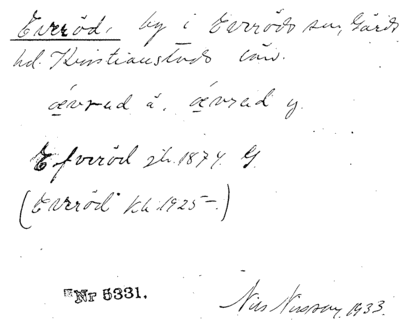 Everöd, by i Everöds sn, Gärds
hd. Kristianstads län.
ævrad ä. ævrad y.
Efveröd jb. 1874 G
(Everöd kb. 1925–.)
Nr 5331.
Nils 1933.